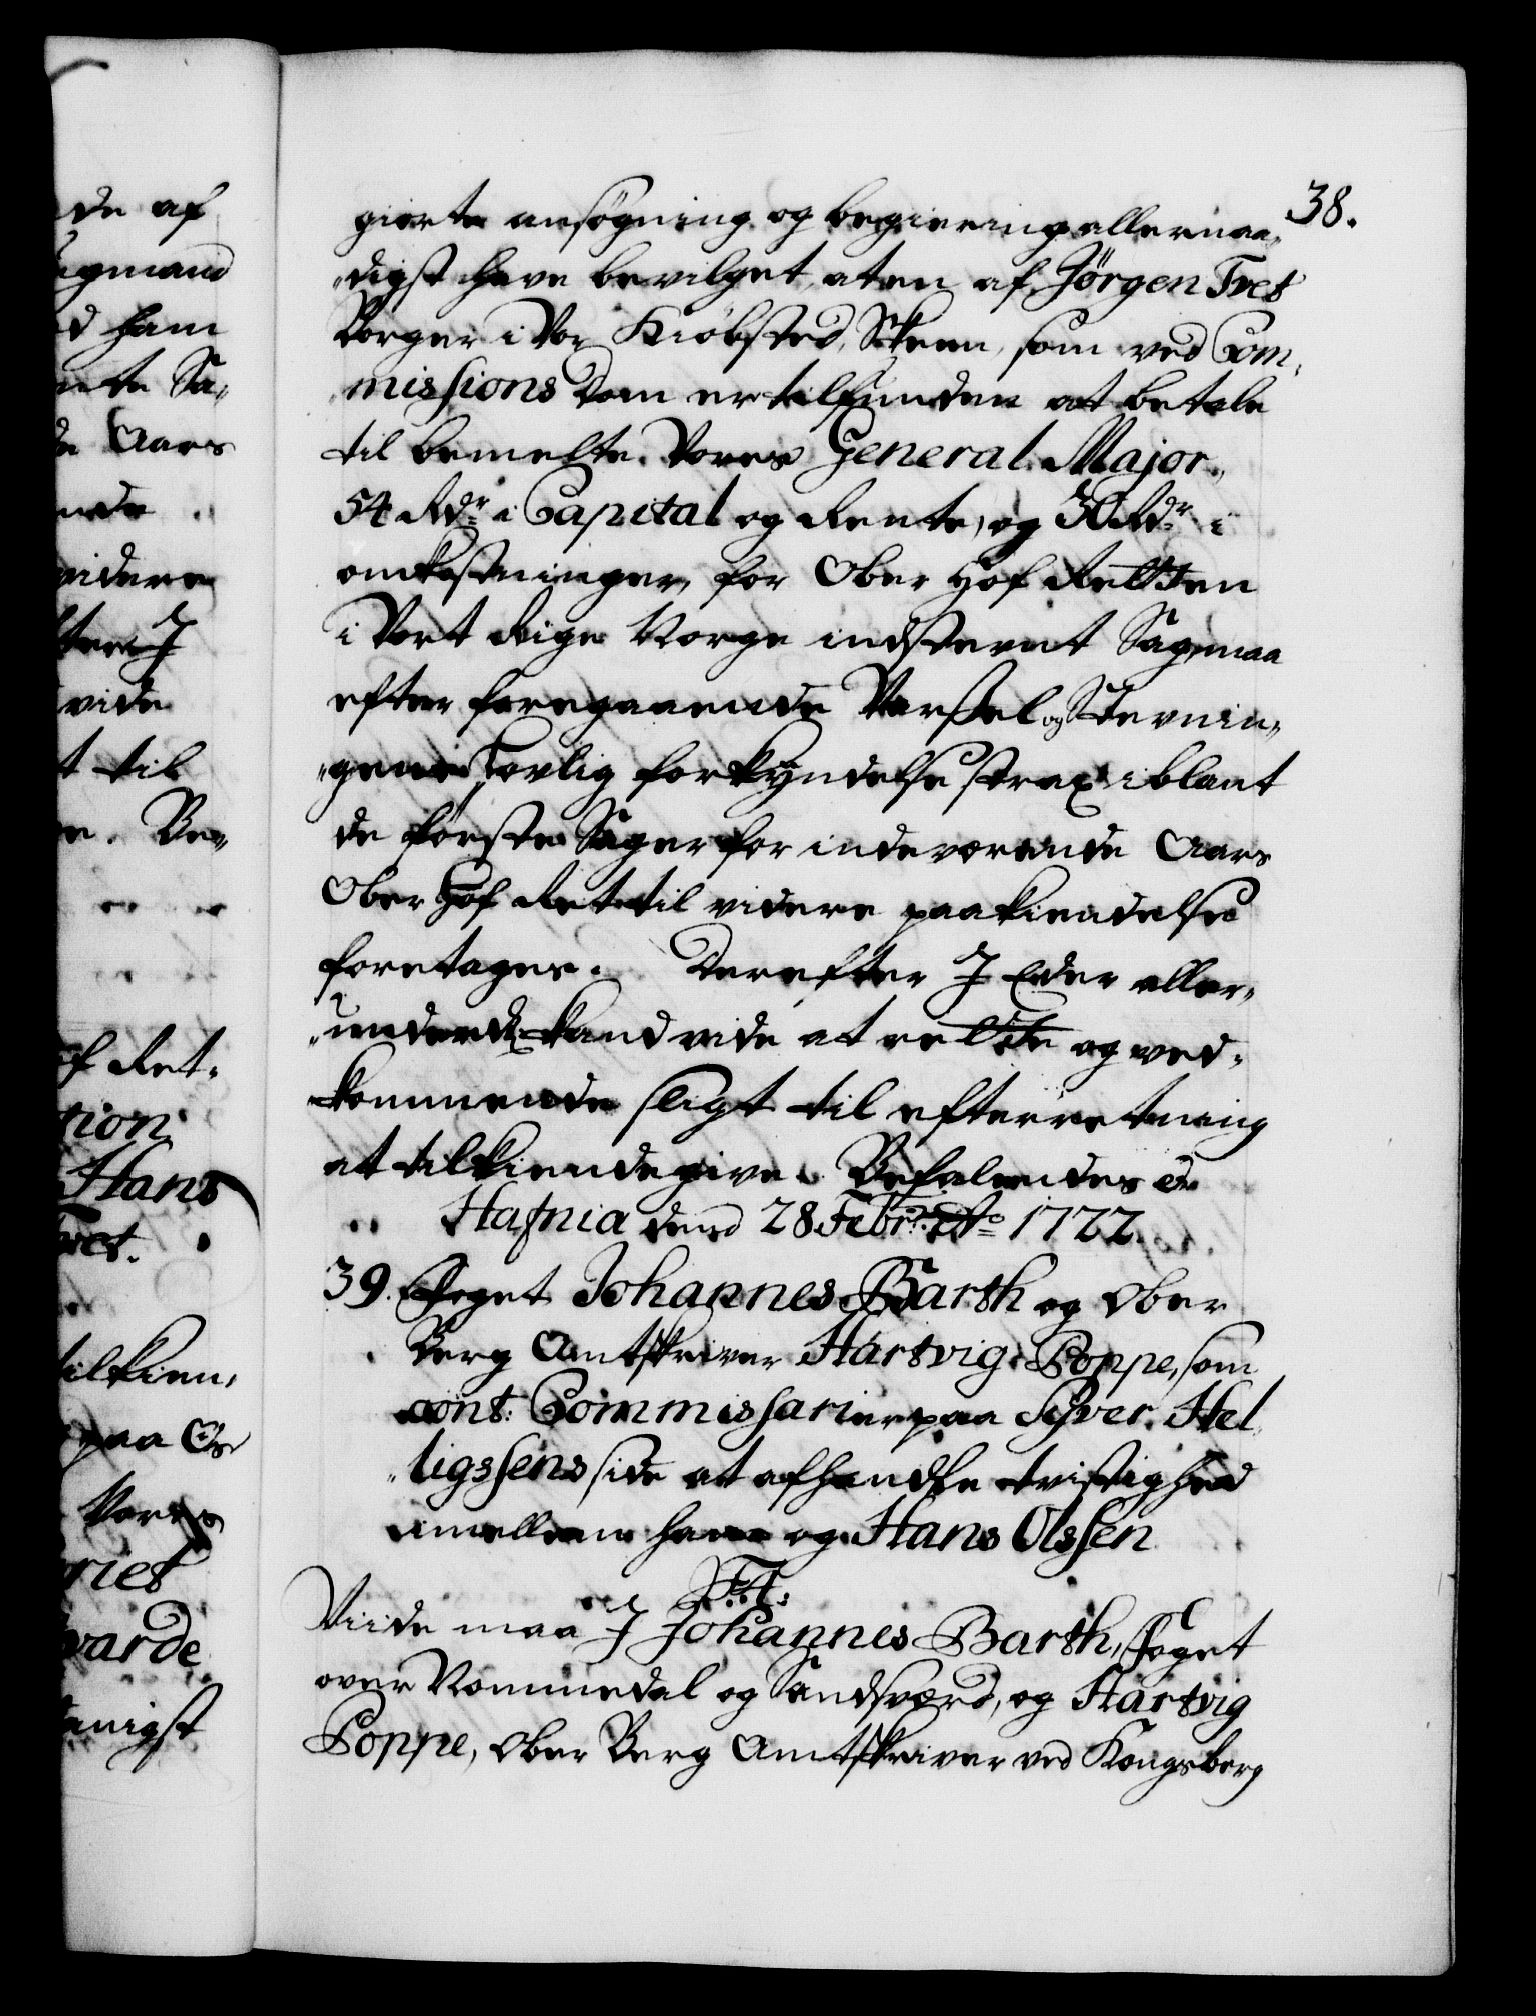 38.
giorte ansøgning og begiering allernaa„
„digst have bevilget, at en af Jörgen Tvet
Borger i Vor Kiöbsted, Skeen, som ved Com„
missions Dom er tilfunden at betale
til bemelte Vores General Major.
54 Rdr i Capital og Rente, og 30 Rdr i
omkostninger, for Ober Hof Retten
i Vort Rige Norge indstevnt Sag, maa
efter foregaaende Varsel og Stevnin„
„gens lovlig forkÿndelse strax iblant
de første Sager for indeværende Aars
Ober Hof Ret til videre paakiendelse
foretages. Derefter I Eder aller„
„underd: kand vide at rette og ved„
kommende sligt til efterretning
at tilkiendegive. Befalendes Er
Hafnia dend 28 Febr: Ao 1722.
39. Foget Johannes Barth og Ober
Berg Amtskriver Hartvig Poppe, som
const: Commissarier paa Siver Hel„
„ligssens side at afhandle tvistighed
imellem ham og Hans Olssen
F.4.
Viide maa I Johannes Barth, Foget
over Nommedal og Sandsværd, og Hartvig
Poppe, Ober Berg Amtskriver ved Kongsberg
de af
egmand
d ham
Aars
videre
I
vide
t til
Ret„
tion
Hans
vet.
tilkien„
paa
Vores
riet
varde